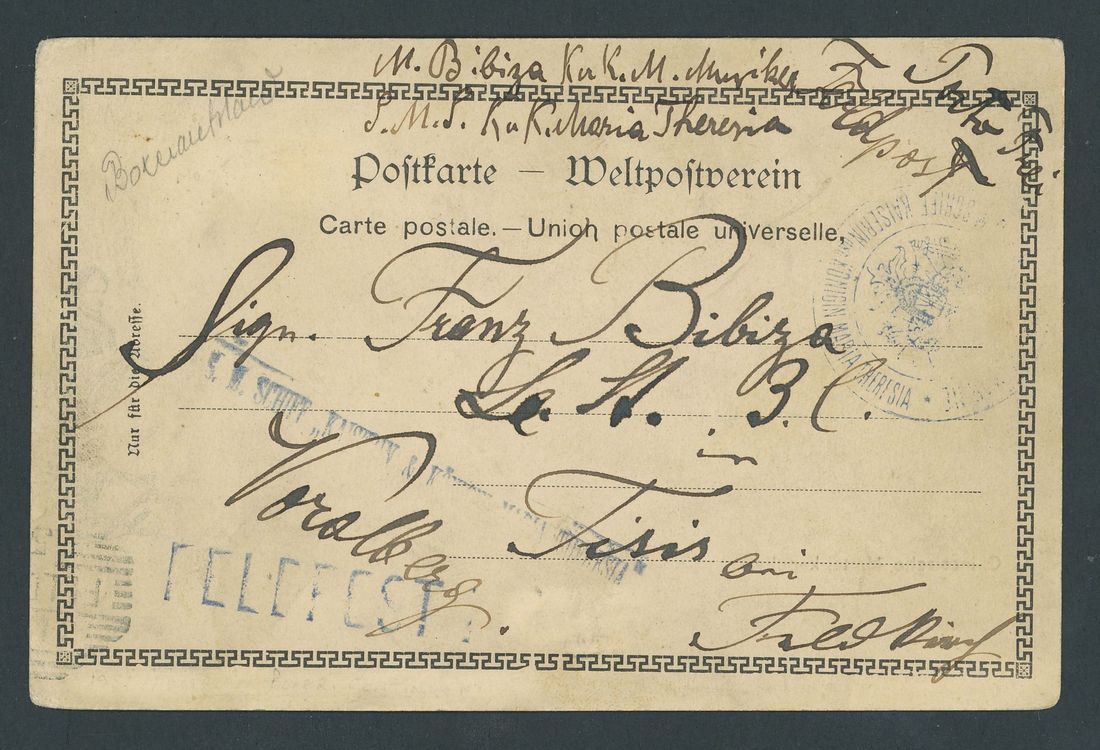 M. Bibiza K u K. M. Musiker
S. M. S. K u K. Maria Theresia
Feldpost
Postkarte — Weltpostverein
Carte postale. — Union postale universelle,
Nur für die Adresse.
Sign. Franz Bibiza
3 C.
in
Tisis
bei
Feldkirch
Voralberg.
S. M. SCHIFF „KAISERIN & KÖNIGIN MARIA THERESIA"
FELDPOST
SCHIFF KAISERIN UND KÖNIGIN MARIA THERESIA *